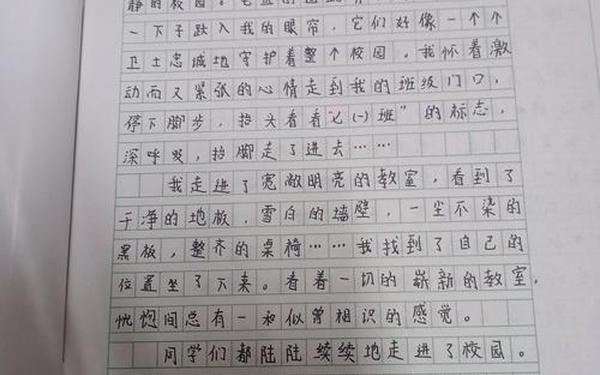 静的校园。
一下子跃入我的眼帘，它们好像一个个
卫士忠诚地守护着整个校园。我怀着激
动而又紧张的心情走到我的班级门口，
停下脚步，抬头看看“七(一)班”的标志，
深呼吸，抬脚走了进去……
我走进了宽敞明亮的教室，看到了
干净的地板，雪白的墙壁，一尘不染的
黑板，整齐的桌椅……我找到了自己的
位置坐了下来。看着一切的崭新的教室，
恍惚间总有一种似曾相识的感觉。
同学们都陆陆续续地走进了校园。